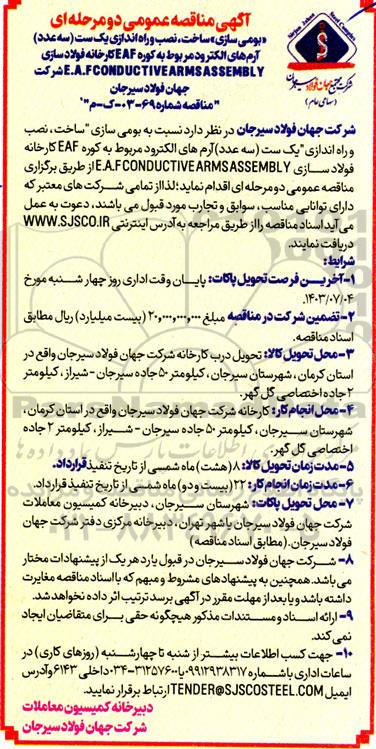 آگهی مناقصه عمومی دو مرحله ای
«بومی سازی»ساخت، نصب و راه اندازی یک ست (سه عدد)
آرم های الکترود مربوط به کوره EAF کارخانه فولادسازی
E.A.F CONDUCTIVE ARMS ASSEMBLY شرکت
جهان فولاد سیرجان
"مناقصه شماره ۶۹-۰۳-ک-م"
شرکت مجتمع جهان فولاد سیرجان
(سهامی عام)
Sirjan Jahan Steel Complex
شرکت جهان فولاد سیرجان در نظر دارد نسبت به بومی سازی "ساخت، نصب
و راه اندازی "یک ست (سه عدد) آرم های الکترود مربوط به کوره EAF کارخانه
فولاد سازی E.A.F CONDUCTIVE ARMS ASSEMBLY از طریق برگزاری
مناقصه عمومی دو مرحله ای اقدام نماید؛ لذا از تمامی شرکت های معتبر که
دارای توانایی مناسب، سوابق و تجارب مورد قبول می باشند، دعوت به عمل
می آید اسناد مناقصه را از طریق مراجعه به آدرس اینترنتی WWW.SJSCO.IR
دریافت نمایند.
شرایط:
۱-آخرین فرصت تحویل پاکات: پایان وقت اداری روز چهار شنبه مورخ
۱۴۰۳/۰۷/۰۴.
۲-تضمین شرکت در مناقصه مبلغ ۲۰,۰۰۰,۰۰۰,۰۰۰ (بیست میلیارد) ریال مطابق
اسناد مناقصه.
۳-محل تحویل کالا: تحویل درب کارخانه شرکت جهان فولاد سیرجان واقع در
استان کرمان ، شهرستان سیرجان، کیلومتر ۵۰ جاده سیرجان - شیراز ، کیلومتر
۲ جاده اختصاصی گل گهر.
۴-محل انجام کار: کارخانه شرکت جهان فولاد سیرجان واقع در استان کرمان ،
شهرستان سیرجان ، کیلومتر ۵۰ جاده سیرجان - شیراز ، کیلومتر ۲ جاده
اختصاصی گل گهر.
۵-مدت زمان تحویل کالا: ۸ (هشت) ماه شمسی از تاریخ تنفیذ قرارداد.
۶-مدت زمان انجام کار: ۲۲ (بیست و دو) ماه شمسی از تاریخ تنفیذ قرارداد.
۷-محل تحویل پاکات: شهرستان سیرجان ، دبیرخانه کمیسیون معاملات
شرکت جهان فولاد سیرجان یا شهر تهران ، دبیرخانه مرکزی دفتر شرکت جهان
فولاد سیرجان. (مطابق اسناد مناقصه)
۸- شرکت جهان فولاد سیرجان در قبول یا رد هر یک از پیشنهادات مختار
می باشد. همچنین به پیشنهادهای مشروط و مبهم که با اسناد مناقصه مغایرت
داشته باشد و یا بعد از مهلت مقرر در آگهی برسد ترتیب اثر داده نخواهد شد.
۹- ارائه اسناد و مستندات مذکور هیچگونه حقی برای متقاضیان ایجاد
نمی کند.
۱۰- جهت کسب اطلاعات بیشتر از شنبه تا چهارشنبه (روزهای کاری) در
ساعات اداری با شماره ۰۹۹۱۲۹۳۸۳۱۷ یا ۳۱۲۵۷۶۰۰-۰۳۴ داخلی ۶۱۴۳ و آدرس
ایمیل TENDER@SJSCOSTEEL.COM ارتباط برقرار نمایید.
دبیرخانه کمیسیون معاملات
شرکت جهان فولاد سیرجان